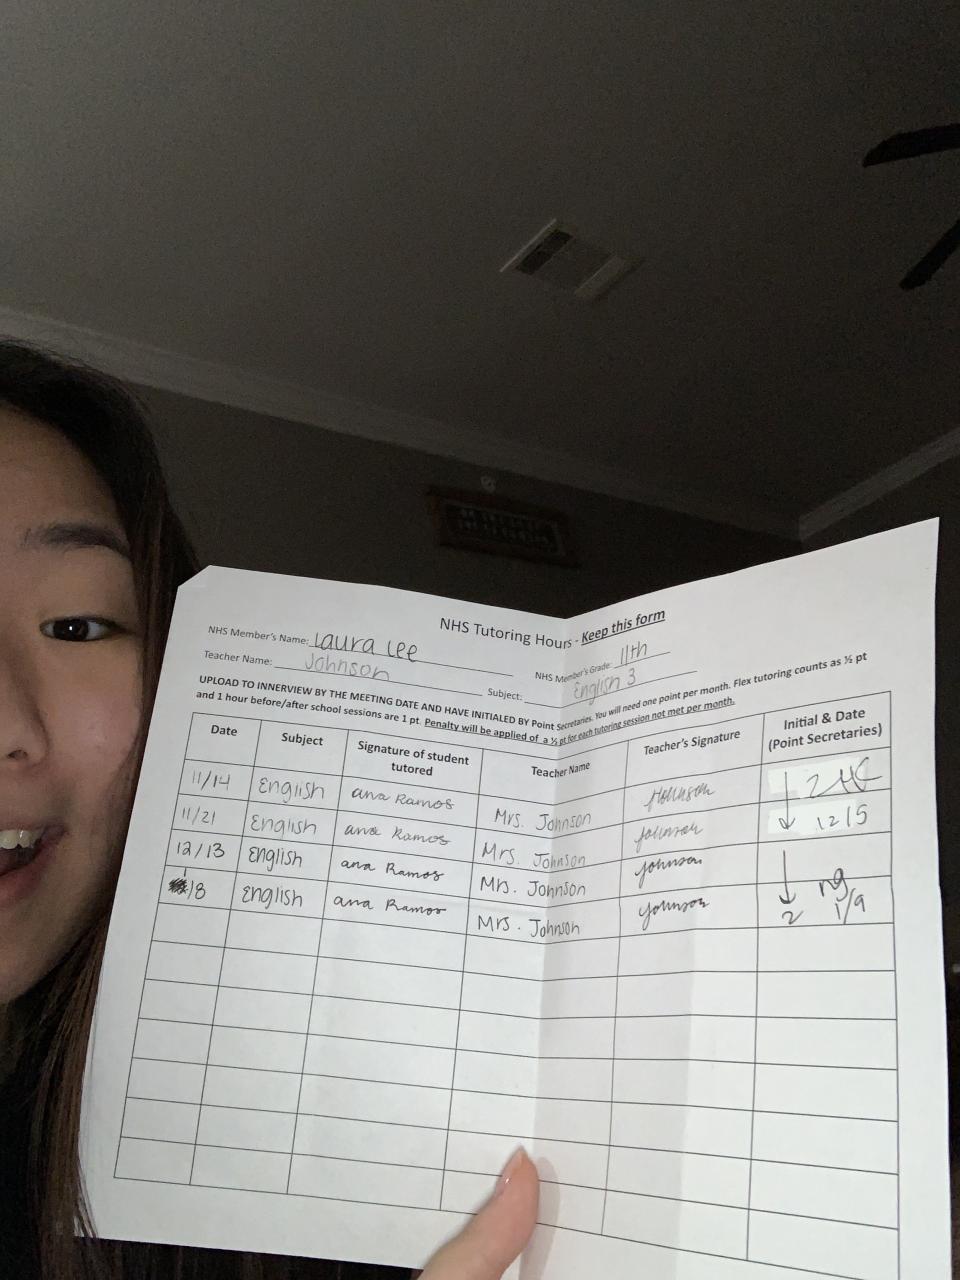 NHS Tutoring Hours - Keep this form
NHS Member's Name: Laura Lee
NHS Member's Grade: 11th
Teacher Name: Johnson
Subject: English 3
UPLOAD TO INNERVIEW BY THE MEETING DATE AND HAVE INITIALED BY Point Secretaries. You will need one point per month. Flex tutoring counts as ½ pt
and 1 hour before/after school sessions are 1 pt. Penalty will be applied of a ½ pt for each tutoring session not met per month.
Date Subject Signature of student tutored Teacher Name Teacher's Signature Initial & Date (Point Secretaries)
11/14 English ana Ramos Mrs. Johnson Johnson 2
11/21 English ana Ramos Mrs. Johnson Johnson 12/5
12/13 English ana Ramos Mrs. Johnson Johnson
1/8 English ana Ramos Mrs. Johnson Johnson 2 ng 1/9